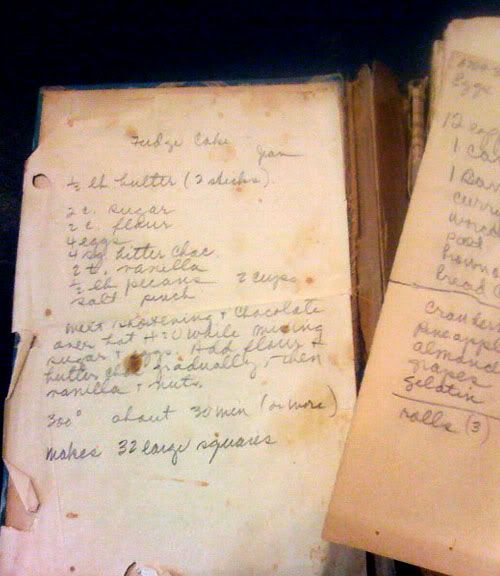 Fudge Cake
Gran
½ lb butter (2 sticks).
2 c. sugar
2 c. flour
4 eggs
4 sq. bitter choc
2 t. vanilla
½ lb pecans 2 cups
salt pinch
melt shortening + chocolate
over hot H2O while mixing
sugar + eggs. Add flour +
butter choc gradually, then
vanilla + nuts.
300° about 30 min (or more)
makes 32 large squares
eggs
12 egg
1 ca
1
curr
word
bread
cranber
pineappl
almond
grapes
gelatin
rolls (3)